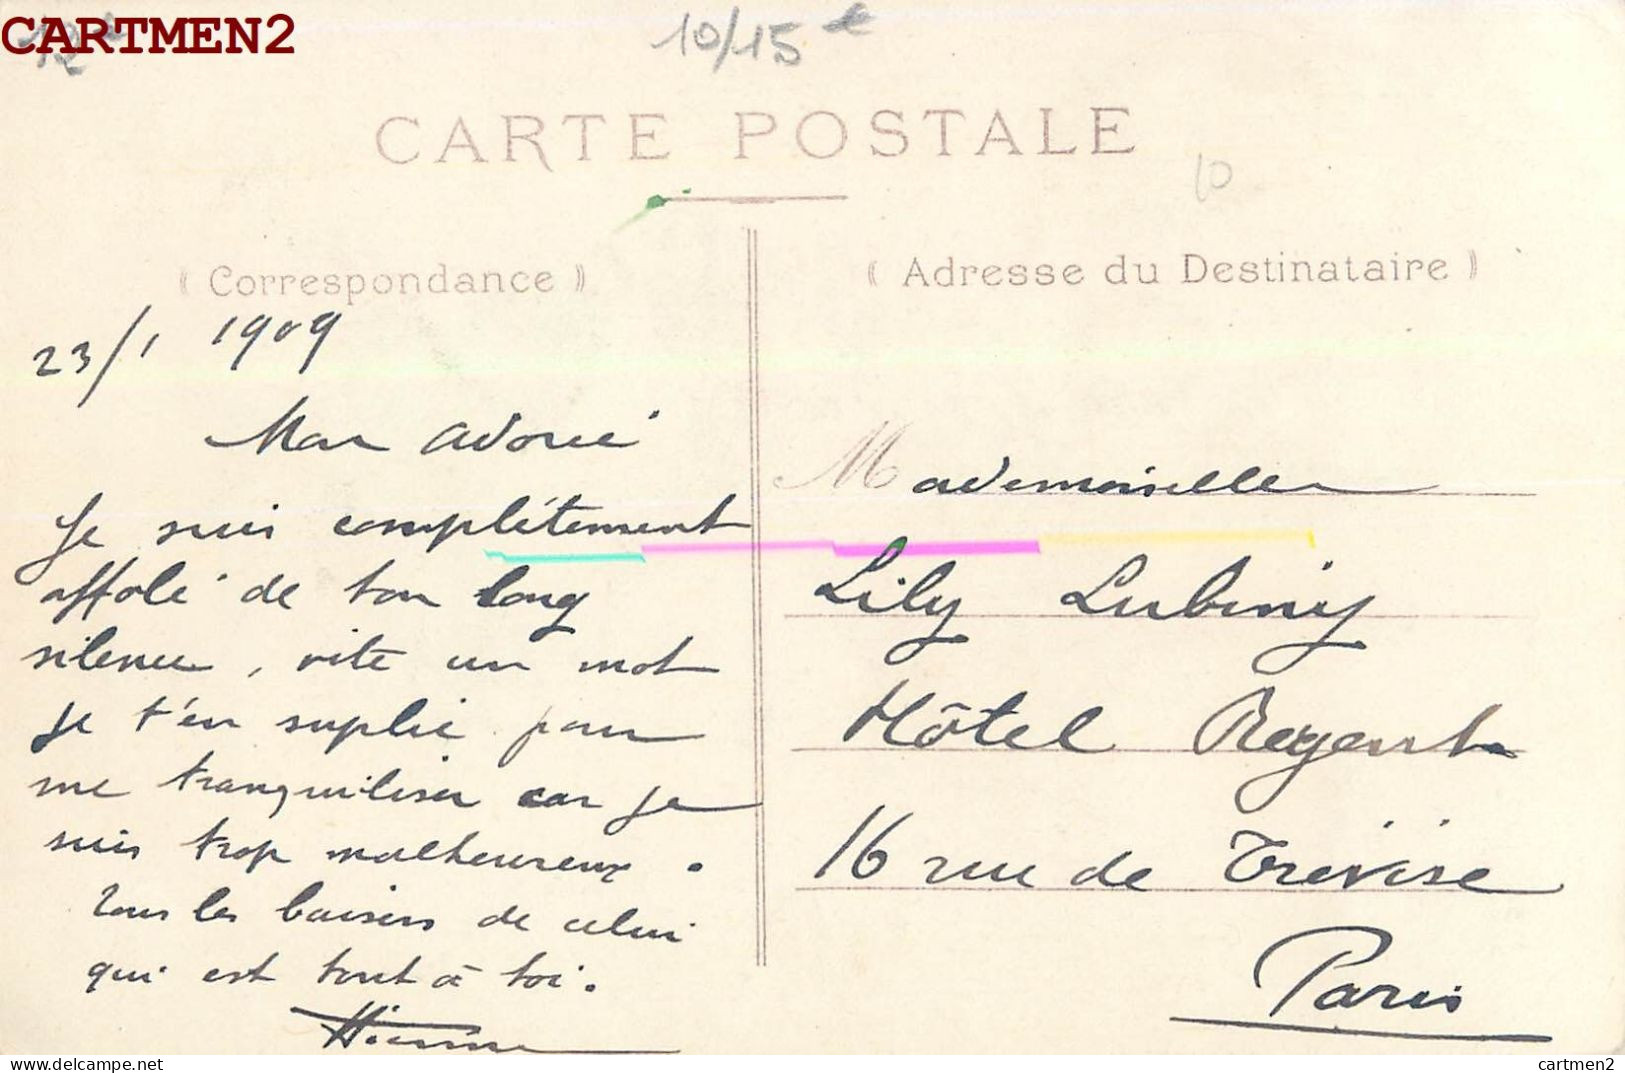 CARTMEN2
12€
10/15€
CARTE POSTALE
10
( Correspondance )
( Adresse du Destinataire )
23/1 1909
Mon adorée
Je suis complétement
affolé de ton long
silence, vite un mot
je t'en suplie pour
me tranquiliser car je
suis trop malheureux.
Tous les baisers de celui
qui est tout à toi.
Mademoiselle
Lily Lubiny
Hôtel Regent
16 rue de Trévise
Paris
cartmen2